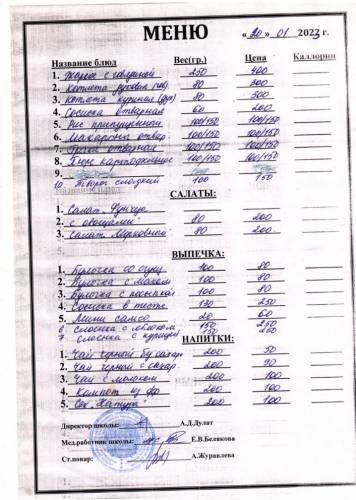 МЕНЮ «20» 01 2023 г.
Название блюд Вес(гр.) Цена Каллории
1. 250 400
2. Котлета 80 300
3. Котлета куриная 80 300
4. Сосиска отварная 60 200
5. Рис припущенный 100/150 100/150
6. Макароны отвар 100/150 100/150
7. Греча отварная 100/150 100/150
8. Пюре картофельное 100/150 100/150
9.
10 сладкий 100 150
САЛАТЫ:
1. Салат Фунчоза
2. с овощами 80 200
3. Салат Морковный 80 200
ВЫПЕЧКА:
1. Булочка со сгущ 100 80
2. Булочка с маком 100 80
3. Булочка с посыпкой 100 80
4. Сосиска в тесте 130 250
5. Мини самса 20 60
6 слоенка с яблоком 150 250
7 слоенка с курицей 150
НАПИТКИ:
1. Чай черный без сахар 200 50
2. Чай черный с сахар 200 90
3. Чай с молоком 200 100
4. Компот из 200 100
5. Сок 200 100
Директор школы: А.Д.Дулат
Мед.работник школы: Е.В.Белякова
Ст.повар: А.Журавлева